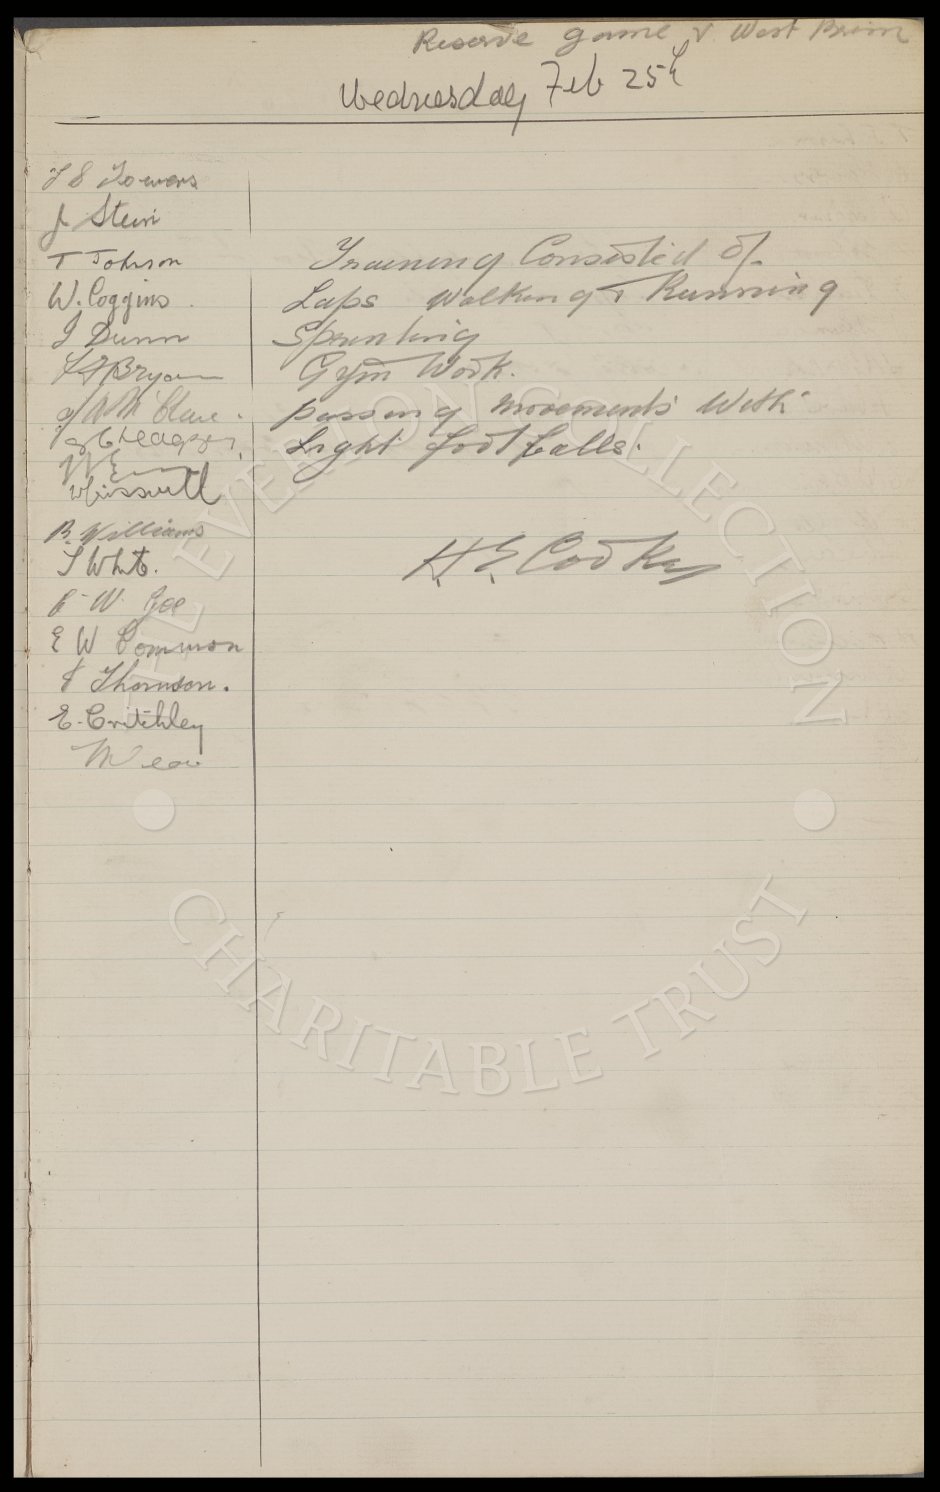 Reserve game v West Brom
Wednesday Feb 25th
Towers
J Stein
T Johnson
W. Coggins
J Dunn
Bryan
McClure.
Whissett
B. Williams
T White.
W. Gee
E W Common
J Thomson.
E. Critchley
Training Consisted Of
Laps Walking & Running
Sprinting
Gym Work.
passing movements With
Light footballs.
H. E. Cooke
THE EVERTON COLLECTION
CHARITABLE TRUST